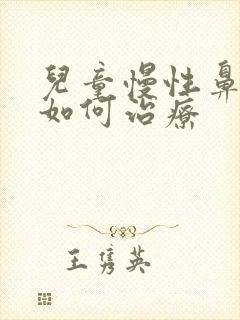 兒童慢性鼻
如何治療
王雋英